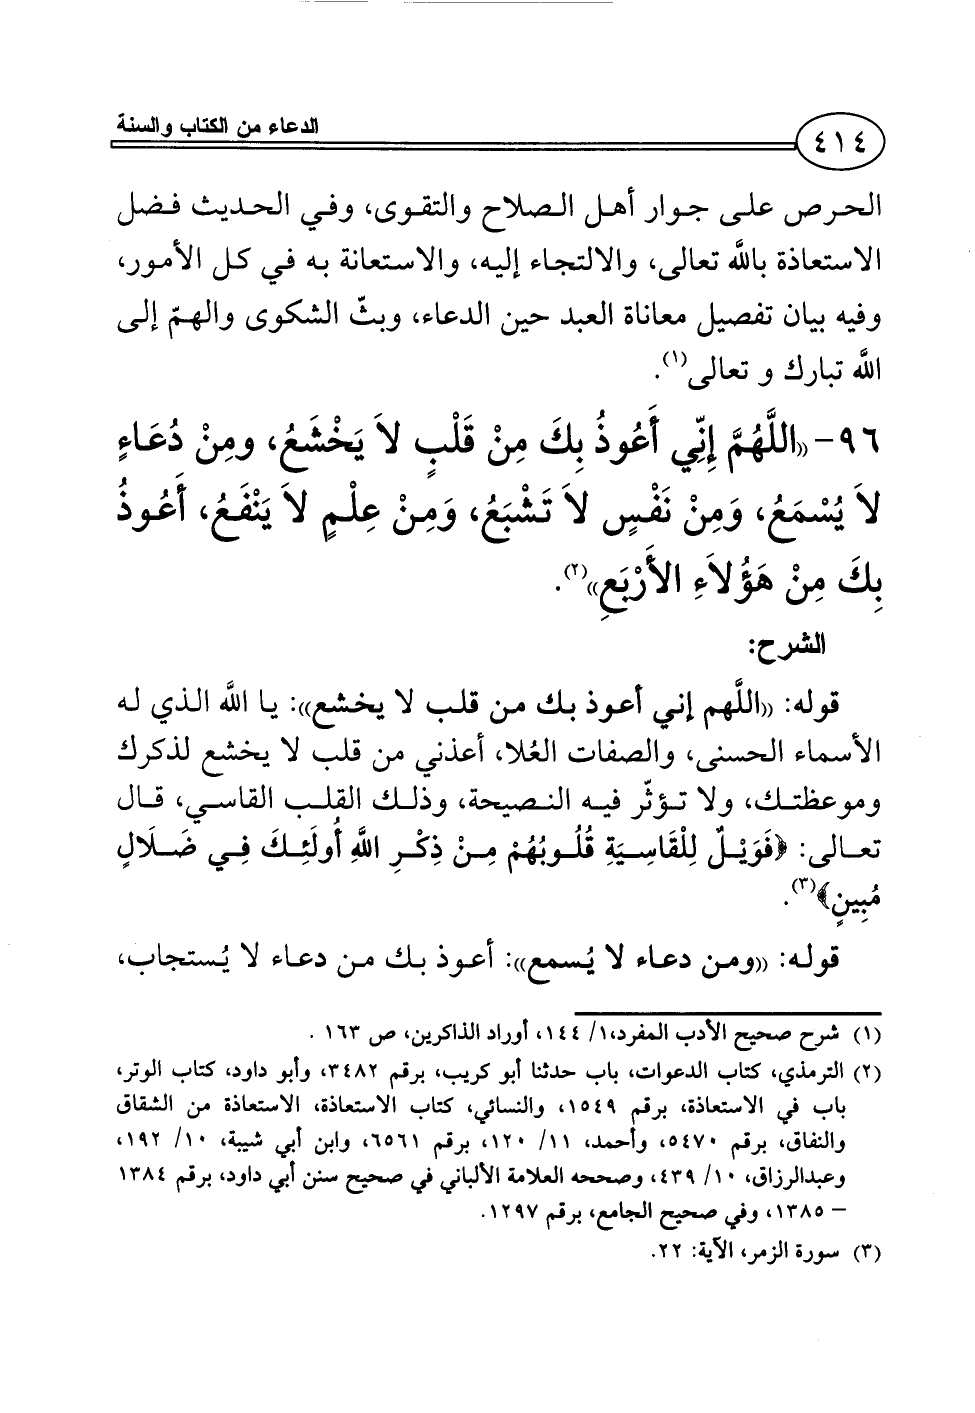 ٤١٤
الدعاء من الكتاب والسنة
الحرص على جوار أهل الصلاح والتقوى، وفي الحديث فضل
الاستعاذة بالله تعالى، والالتجاء إليه، والاستعانة به في كل الأمور،
وفيه بيان تفصيل معاناة العبد حين الدعاء، وبثّ الشكوى والهمّ إلى
الله تبارك و تعالى(١).
٩٦- «اللَّهُمَّ إِنِّي أَعُوذُ بِكَ مِنْ قَلْبٍ لاَ يَخْشَعُ، ومِنْ دُعَاءٍ
لاَ يُسْمَعُ، وَمِنْ نَفْسٍ لاَ تَشْبَعُ، وَمِنْ عِلْمٍ لاَ يَنْفَعُ، أَعُوذُ
بِكَ مِنْ هَؤُلاَءِ الأَرْبَعِ»(٢).
الشرح:
قوله: «اللَّهم إني أعوذ بك من قلب لا يخشع»: يا الله الذي له
الأسماء الحسنى، والصفات العُلا، أعذني من قلب لا يخشع لذكرك
وموعظتك، ولا تؤثّر فيه النصيحة، وذلك القلب القاسي، قال
تعالى: ﴿فَوَيْلٌ لِلْقَاسِيَةِ قُلُوبُهُمْ مِنْ ذِكْرِ اللَّهِ أُولَئِكَ فِي ضَلَالٍ
مُبِينٍ﴾(٣).
قوله: «ومن دعاء لا يُسمع»: أعوذ بك من دعاء لا يُستجاب،
(١) شرح صحيح الأدب المفرد،١/ ١٤٤، أوراد الذاكرين، ص ١٦٣ .
(٢) الترمذي، كتاب الدعوات، باب حدثنا أبو كريب، برقم ٣٤٨٢، وأبو داود، كتاب الوتر،
باب في الاستعاذة، برقم ١٥٤٩، والنسائي، كتاب الاستعاذة، الاستعاذة من الشقاق
والنفاق، برقم ٥٤٧٠، وأحمد، ١١/ ١٢٠، برقم ٦٥٦١، وابن أبي شيبة، ١٠/ ١٩٢،
وعبدالرزاق، ١٠/ ٤٣٩، وصححه العلامة الألباني في صحيح سنن أبي داود، برقم ١٣٨٤
– ١٣٨٥، وفي صحيح الجامع، برقم ١٢٩٧.
(٣) سورة الزمر، الآية: ٢٢.